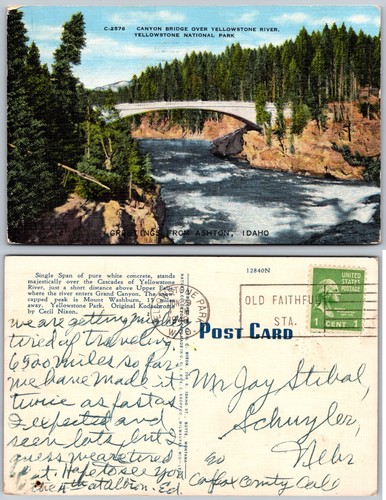 C-2576 CANYON BRIDGE OVER YELLOWSTONE RIVER,
YELLOWSTONE NATIONAL PARK
GREETINGS FROM ASHTON, IDAHO
Single Span of pure white concrete, stands
majestically over the Cascades of Yellowstone
River, just a short distance above Upper Falls
where the river enters Grand Canyon. The
capped peak is Mount Washburn, 15 miles
away. Yellowstone Park. Original Kodachrome
by Cecil Nixon.
12840N
OLD FAITHFUL
STA.
UNITED STATES
POSTAGE
1 CENT 1
POST CARD
we are getting mighty
tired of traveling
6500 miles so far
we have made it
twice as fast as
I expected and
seen lots, but I
guess we are tired
out. Hope to see you
Ed.
Mr Jay Stibal,
Schuyler,
Nebr
Colfax County